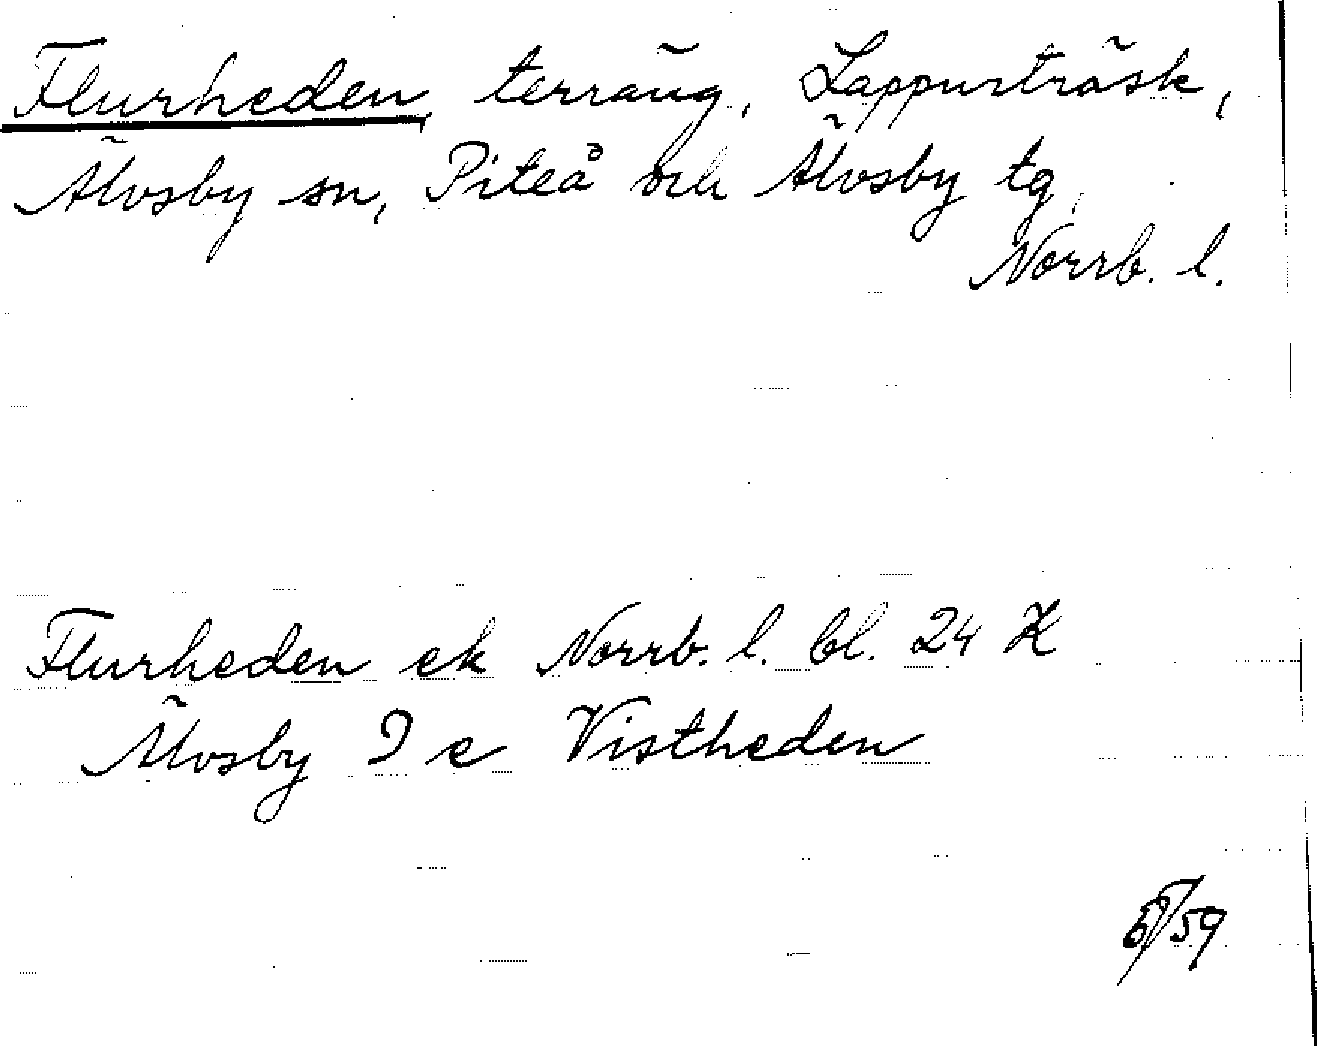 Flurheden, terräng, Lappunträsk,
Älvsby sn, Piteå och Älvsby tg,
Norrb. l.
Flurheden ek Norrb. l. bl. 24 K
Älvsby 9 e Vistheden
/59